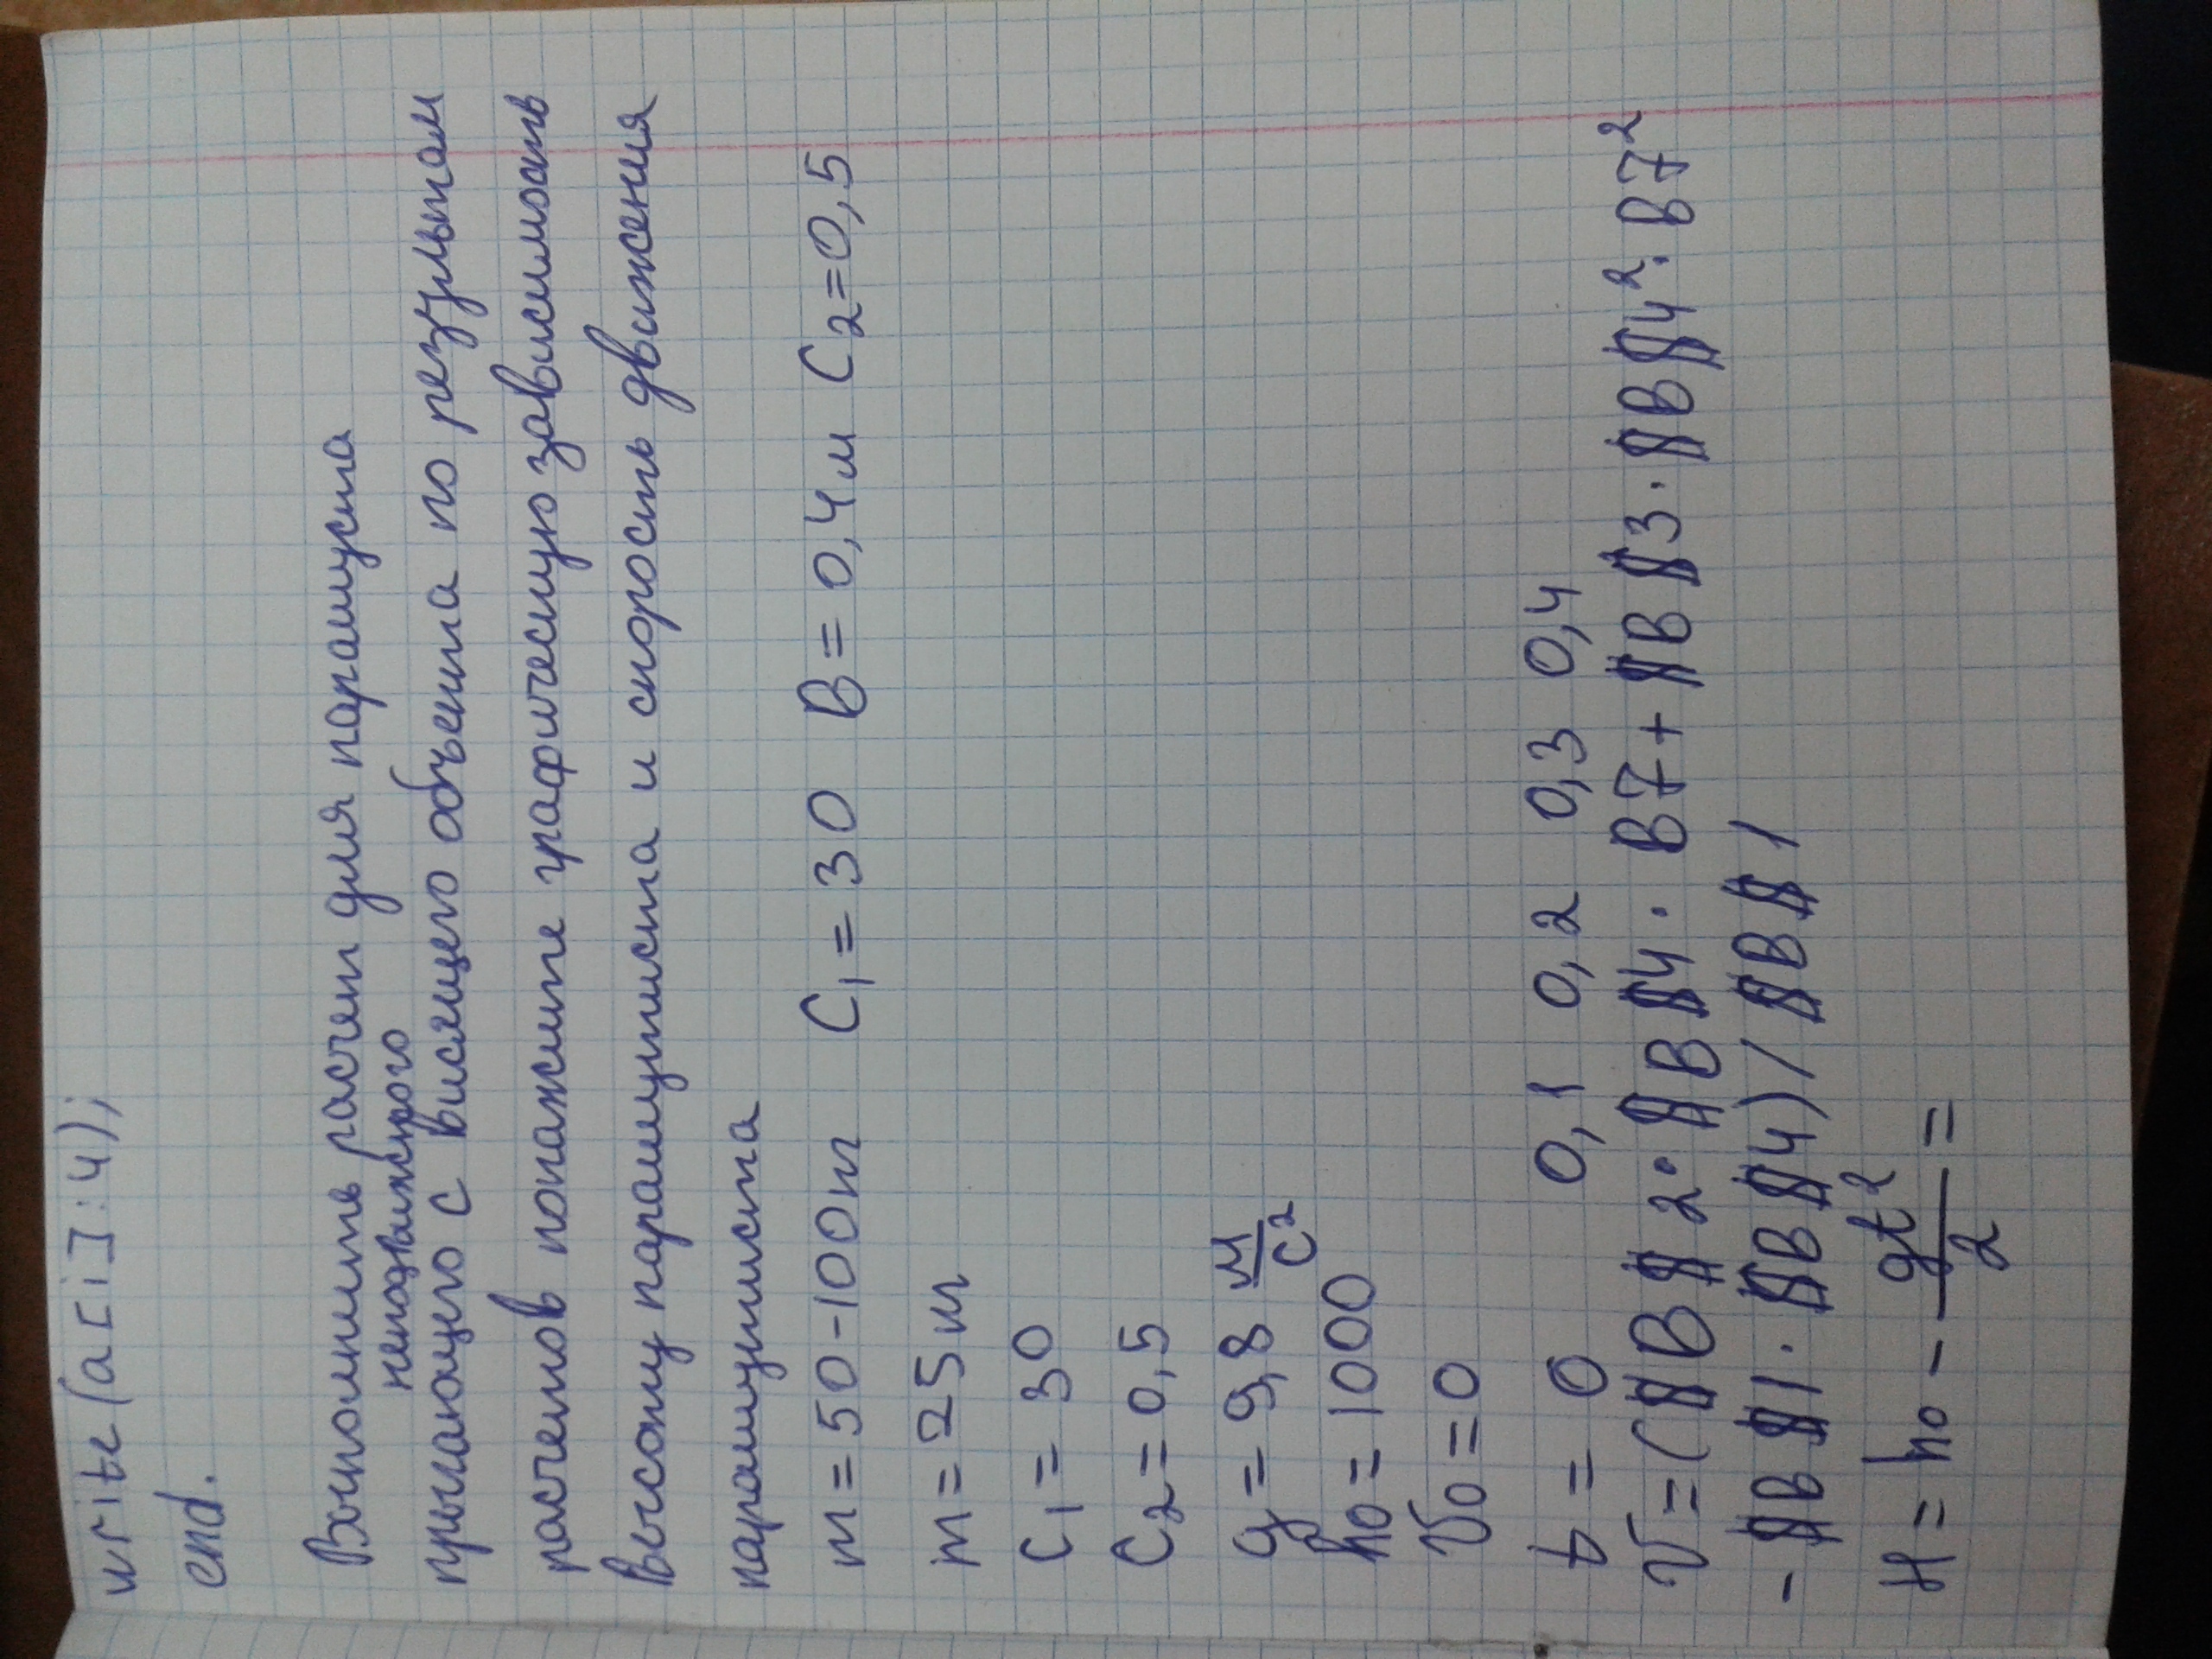 write(a[i]:4);
end.
Выполнить расчет для парашуста
неподвижного
прыгающего с висящего объекта по результатам
расчетов покажите графическую зависимость
высоту парашутиста и скорость движения
парашутиста
m=50-100m C₁=30 B=0,4м C₂=0,5
m=25m
C₁=30
C₂=0,5
g=9,8 м/с²
h₀=1000
v₀=0
t=0 0,1 0,2 0,3 0,4
v=($B$2·$B$4·B7+$B$3·$B$4²·B7²
-$B$1·$B$4)/$B$1
H=h₀-gt²/2=